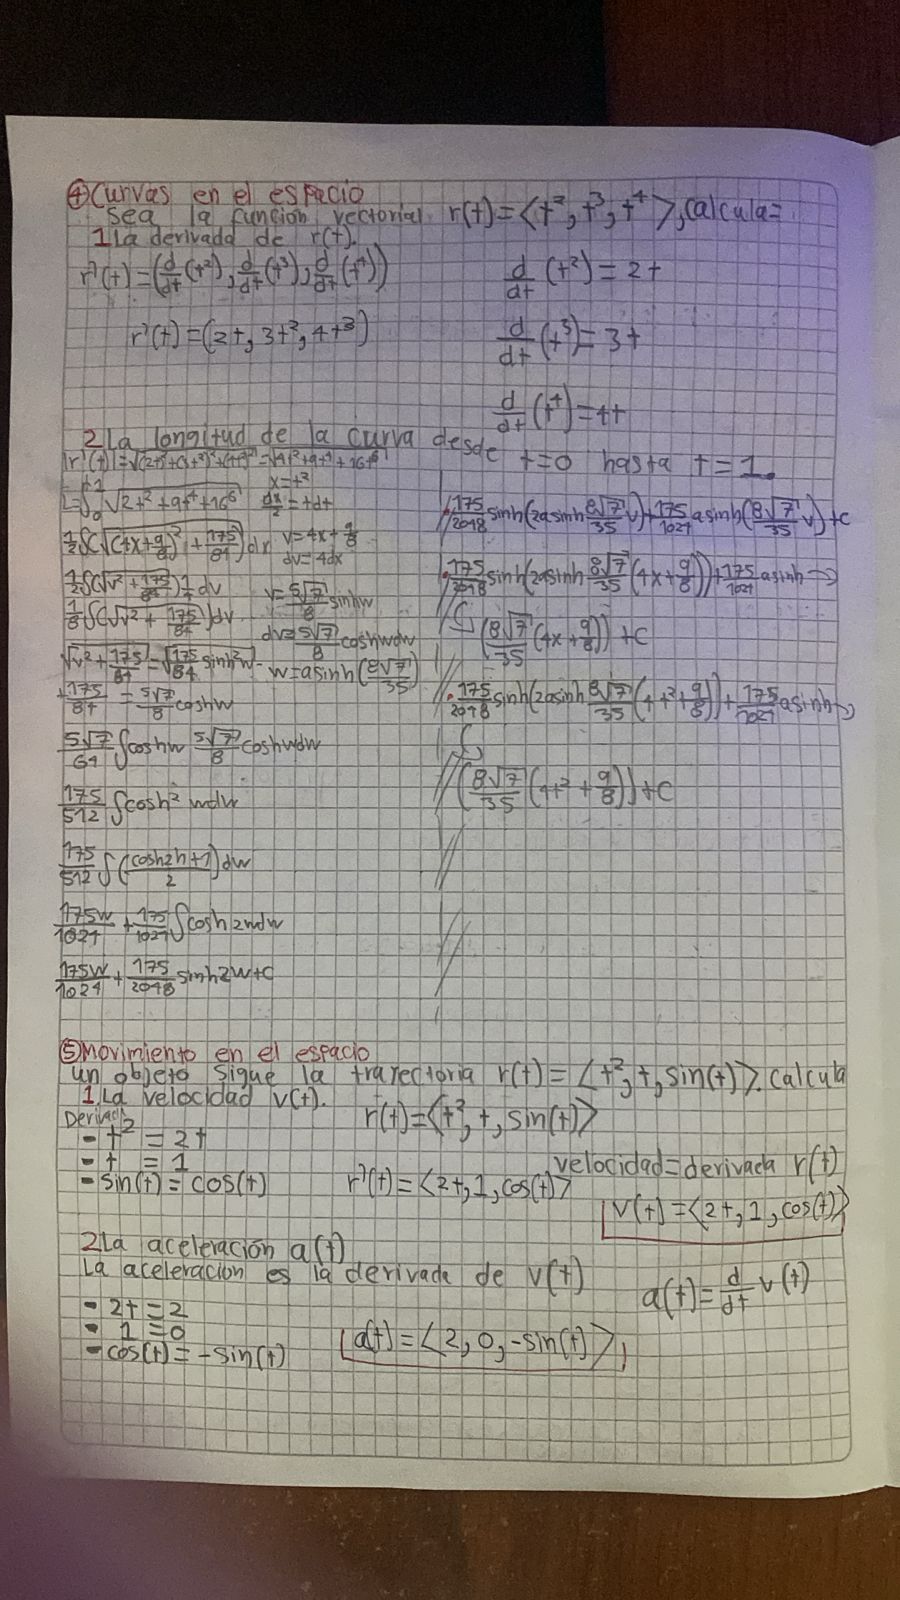 ④ Curvas en el espacio
sea la función vectorial r(t)=⟨t², t³, t⁴⟩, calcula=
1 La derivada de r(t).
r'(t)=(d/dt(t²), d/dt(t³), d/dt(t⁴))
d/dt (t²)=2t
r'(t)=(2t, 3t², 4t³)
d/dt (t³)=3t
d/dt (t⁴)=4t
2 La longitud de la curva desde t=0 hasta t=1.
x=t²
dx/2=tdt
v=4x+9/8
dv=4dx
½∫(√((4x+9/8)²+175/84))dx
½∫(√v²+175/84)¼dv
⅛∫(√v²+175/84)dv
v=5√7/8 sinhw
dv=5√7/8 coshwdw
w=asinh(8√7/35)
√v²+175/84=√175/84 sinh²w-
+175/84 =5√7/8 coshw
5√7/64 ∫coshw 5√7/8 coshwdw
175/512 ∫cosh² wdw
175/512 ∫(cosh2h+1/2)dw
175w/1024 + 175/1024 ∫cosh2wdw
175w/1024 + 175/2048 sinh2w+c
·175/2048 sinh(2asinh 8√7/35 v)+175/1024 asinh(8√7/35 v)+c
·175/2048 sinh(2asinh 8√7/35 (4x+9/8))+175/1024 asinh→
↳(8√7/35 (4x+9/8))+c
·175/2048 sinh(2asinh 8√7/35 (4t²+9/8))+175/1024 asinh→
↳
(8√7/35 (4t²+9/8))+c
⑤ Movimiento en el espacio
un objeto sigue la trayectoria r(t)=⟨t², t, sin(t)⟩. calcula
1. La velocidad v(t).
r(t)=⟨t², t, sin(t)⟩
- t² =2t
- t =1
- sin(t)= cos(t)
r'(t)=⟨2t, 1, cos(t)⟩
velocidad=derivada r(t)
v(t)=⟨2t, 1, cos(t)⟩
2 La aceleración a(t)
La aceleracion es la derivada de v(t)
a(t)=d/dt v(t)
- 2t =2
- 1 =0
- cos(t)= -sin(t)
a(t)=⟨2, 0, -sin(t)⟩